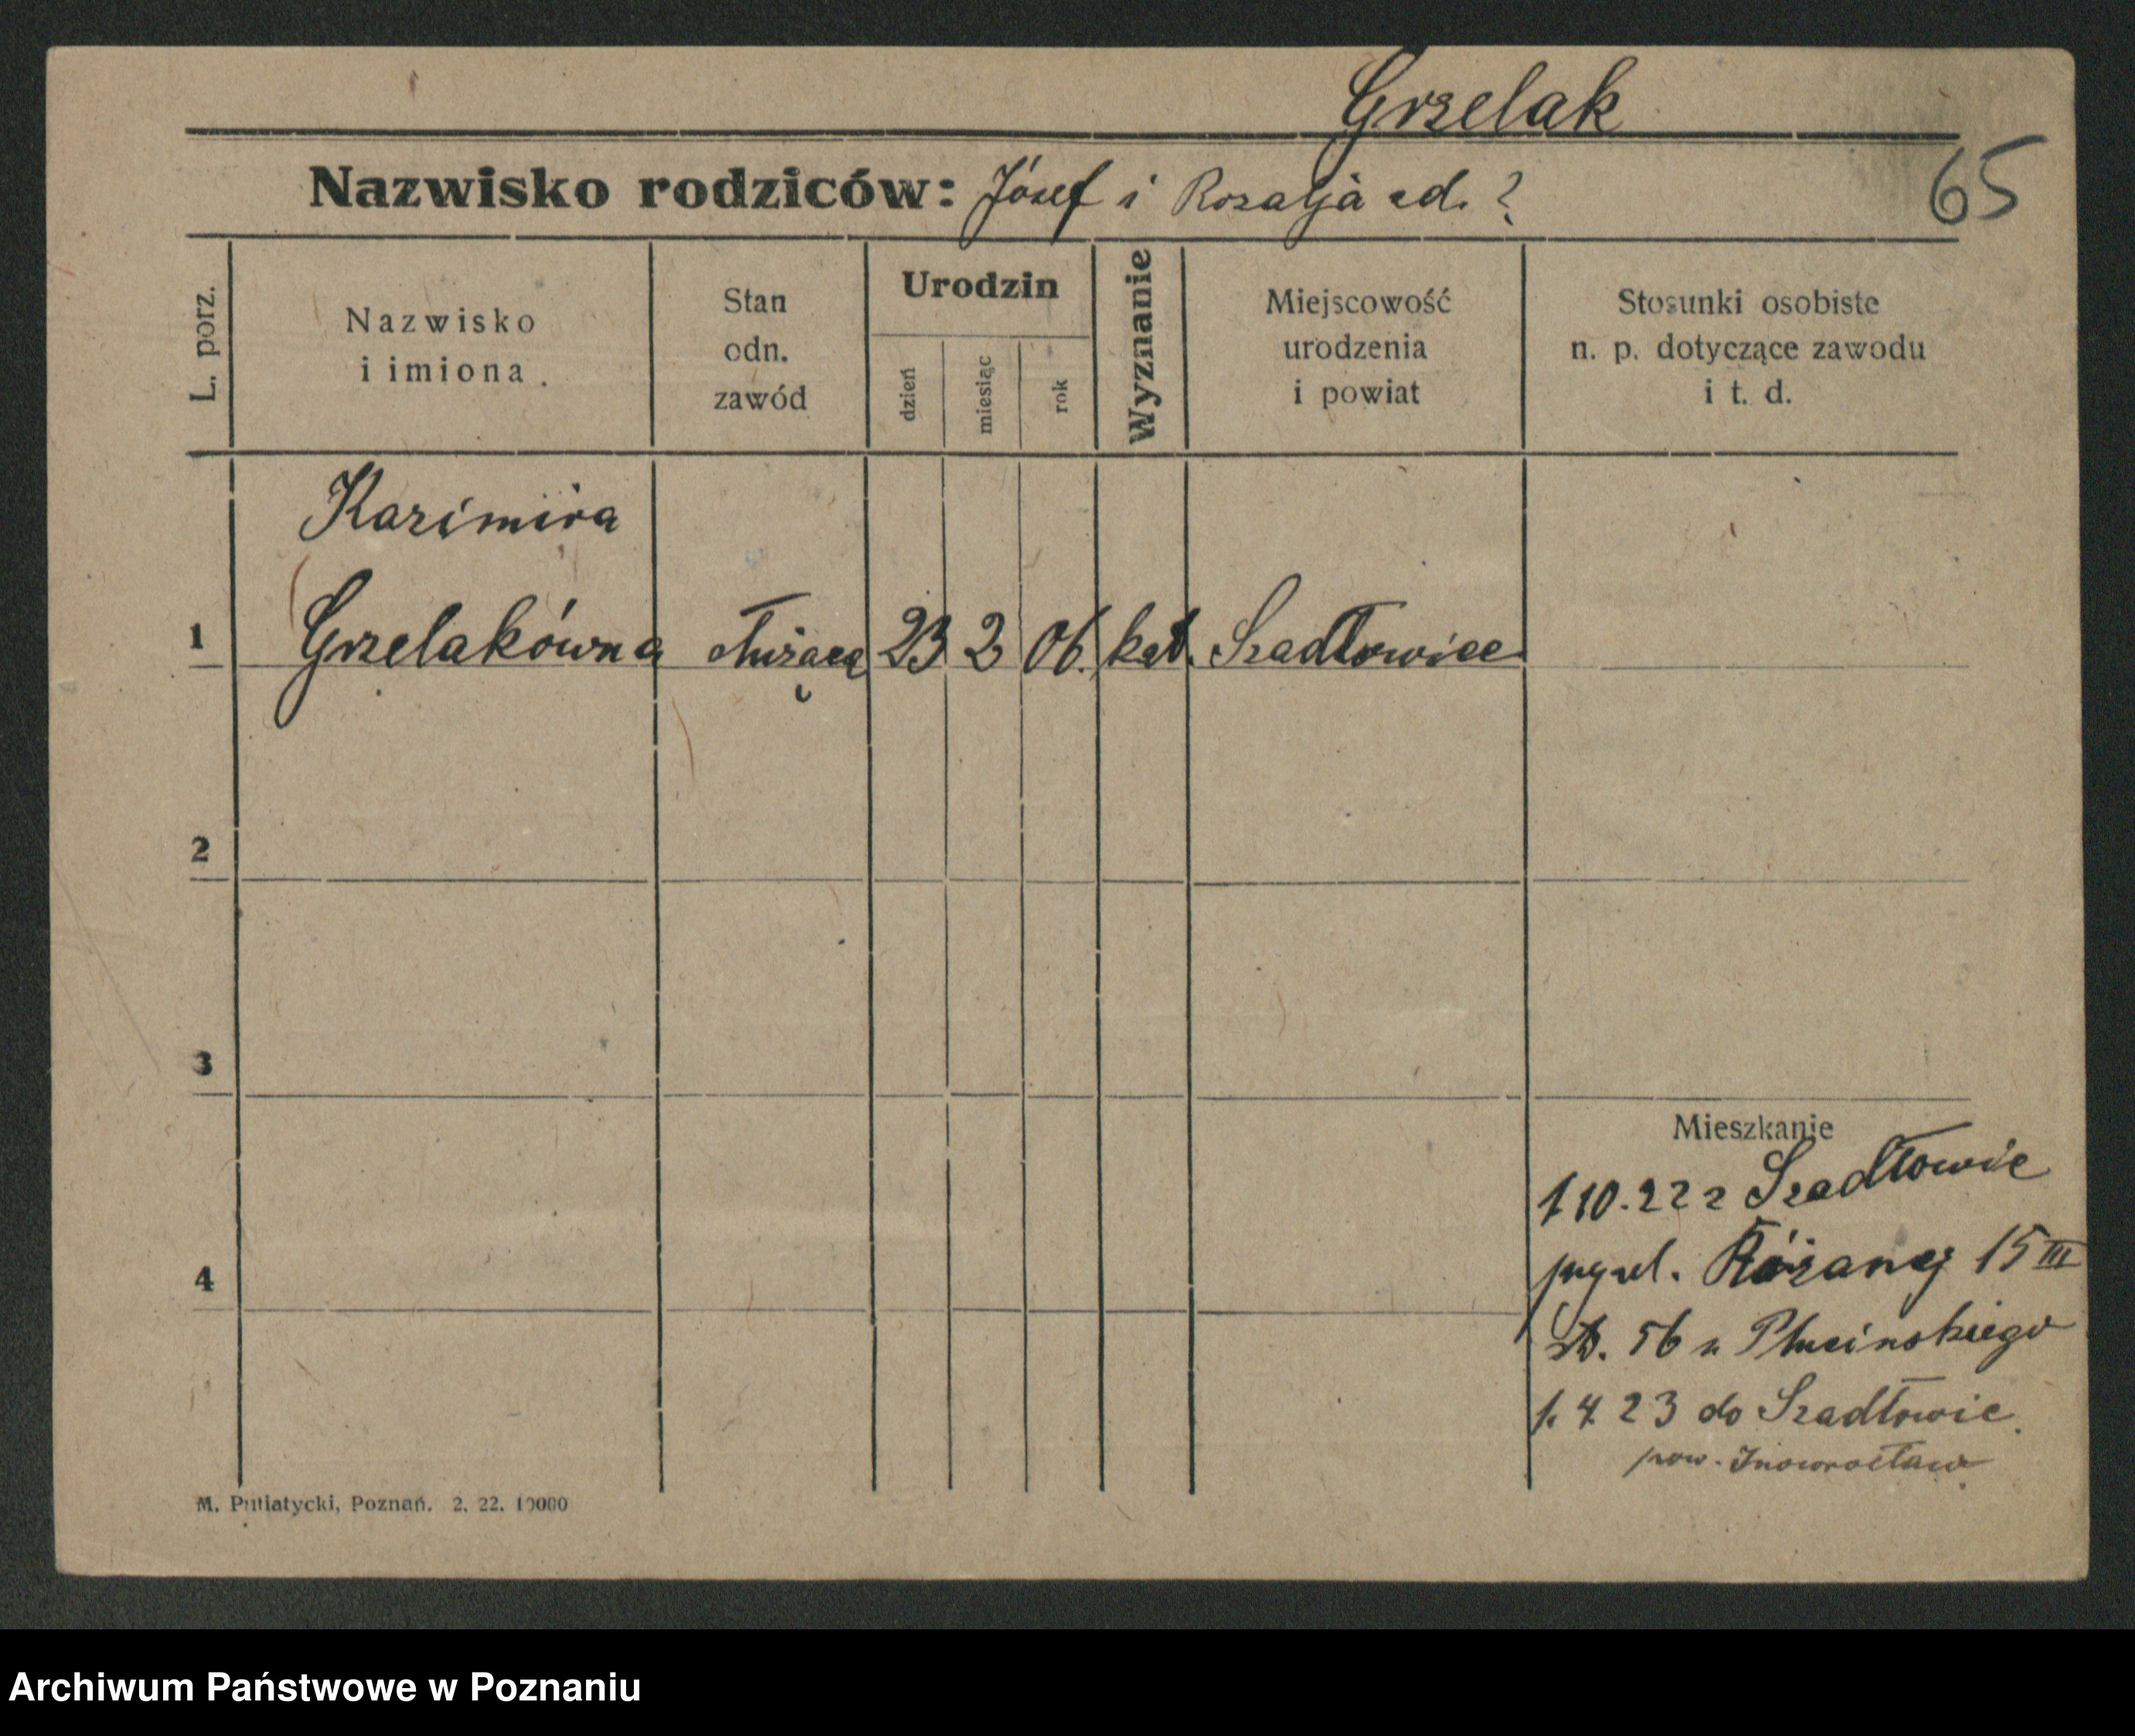 Grzelak
Nazwisko rodziców: Józef i Rozalja zd. ?
65
L. porz.
Nazwisko i imiona.
Stan odn. zawód
Urodzin
dzień
miesiąc
rok
Wyznanie
Miejscowość urodzenia i powiat
Stosunki osobiste n. p. dotyczące zawodu i t. d.
Kazimira
1 Grzelakówna służąca 23 2 06. kat. Szadłowice
2
3
Mieszkanie
1 10. 22 z Szadłowic
4
Różanej 15 III
56 u Plucinskiego
1. 4 23 do Szadłowic.
pow. Inowrocław
M. Putiatycki, Poznań. 2. 22. 10000
Archiwum Państwowe w Poznaniu